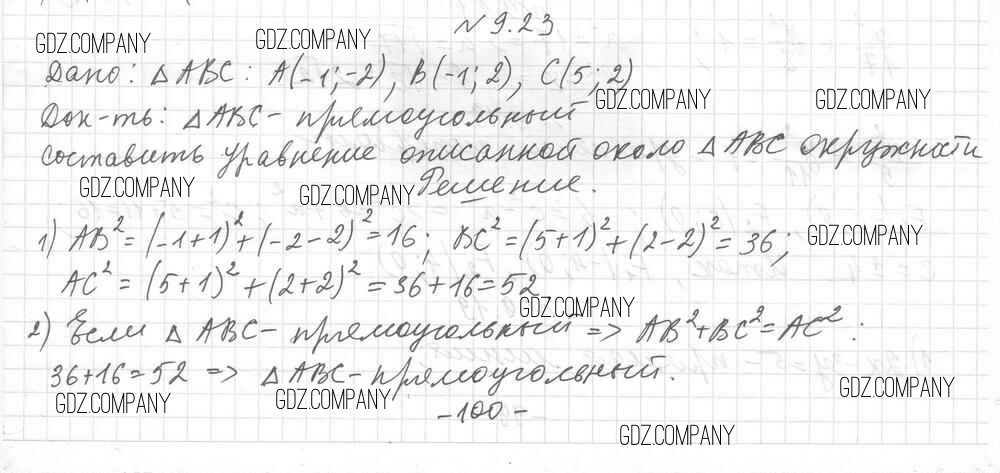 № 9.23
GDZ.COMPANY GDZ.COMPANY
Дано: △ABC: A(-1;-2), B(-1;2), C(5;2)
GDZ.COMPANY GDZ.COMPANY
Док-ть: △ABC - прямоугольный
составить уравнение описанной около △ABC окружности
GDZ.COMPANY GDZ.COMPANY Решение.
1) AB²=(-1+1)²+(-2-2)²=16; BC²=(5+1)²+(2-2)²=36; GDZ.COMPANY
AC²=(5+1)²+(2+2)²=36+16=52
GDZ.COMPANY
2) Если △ABC - прямоугольный => AB²+BC²=AC².
36+16=52 => △ABC - прямоугольный.
GDZ.COMPANY GDZ.COMPANY GDZ.COMPANY
-100-
GDZ.COMPANY